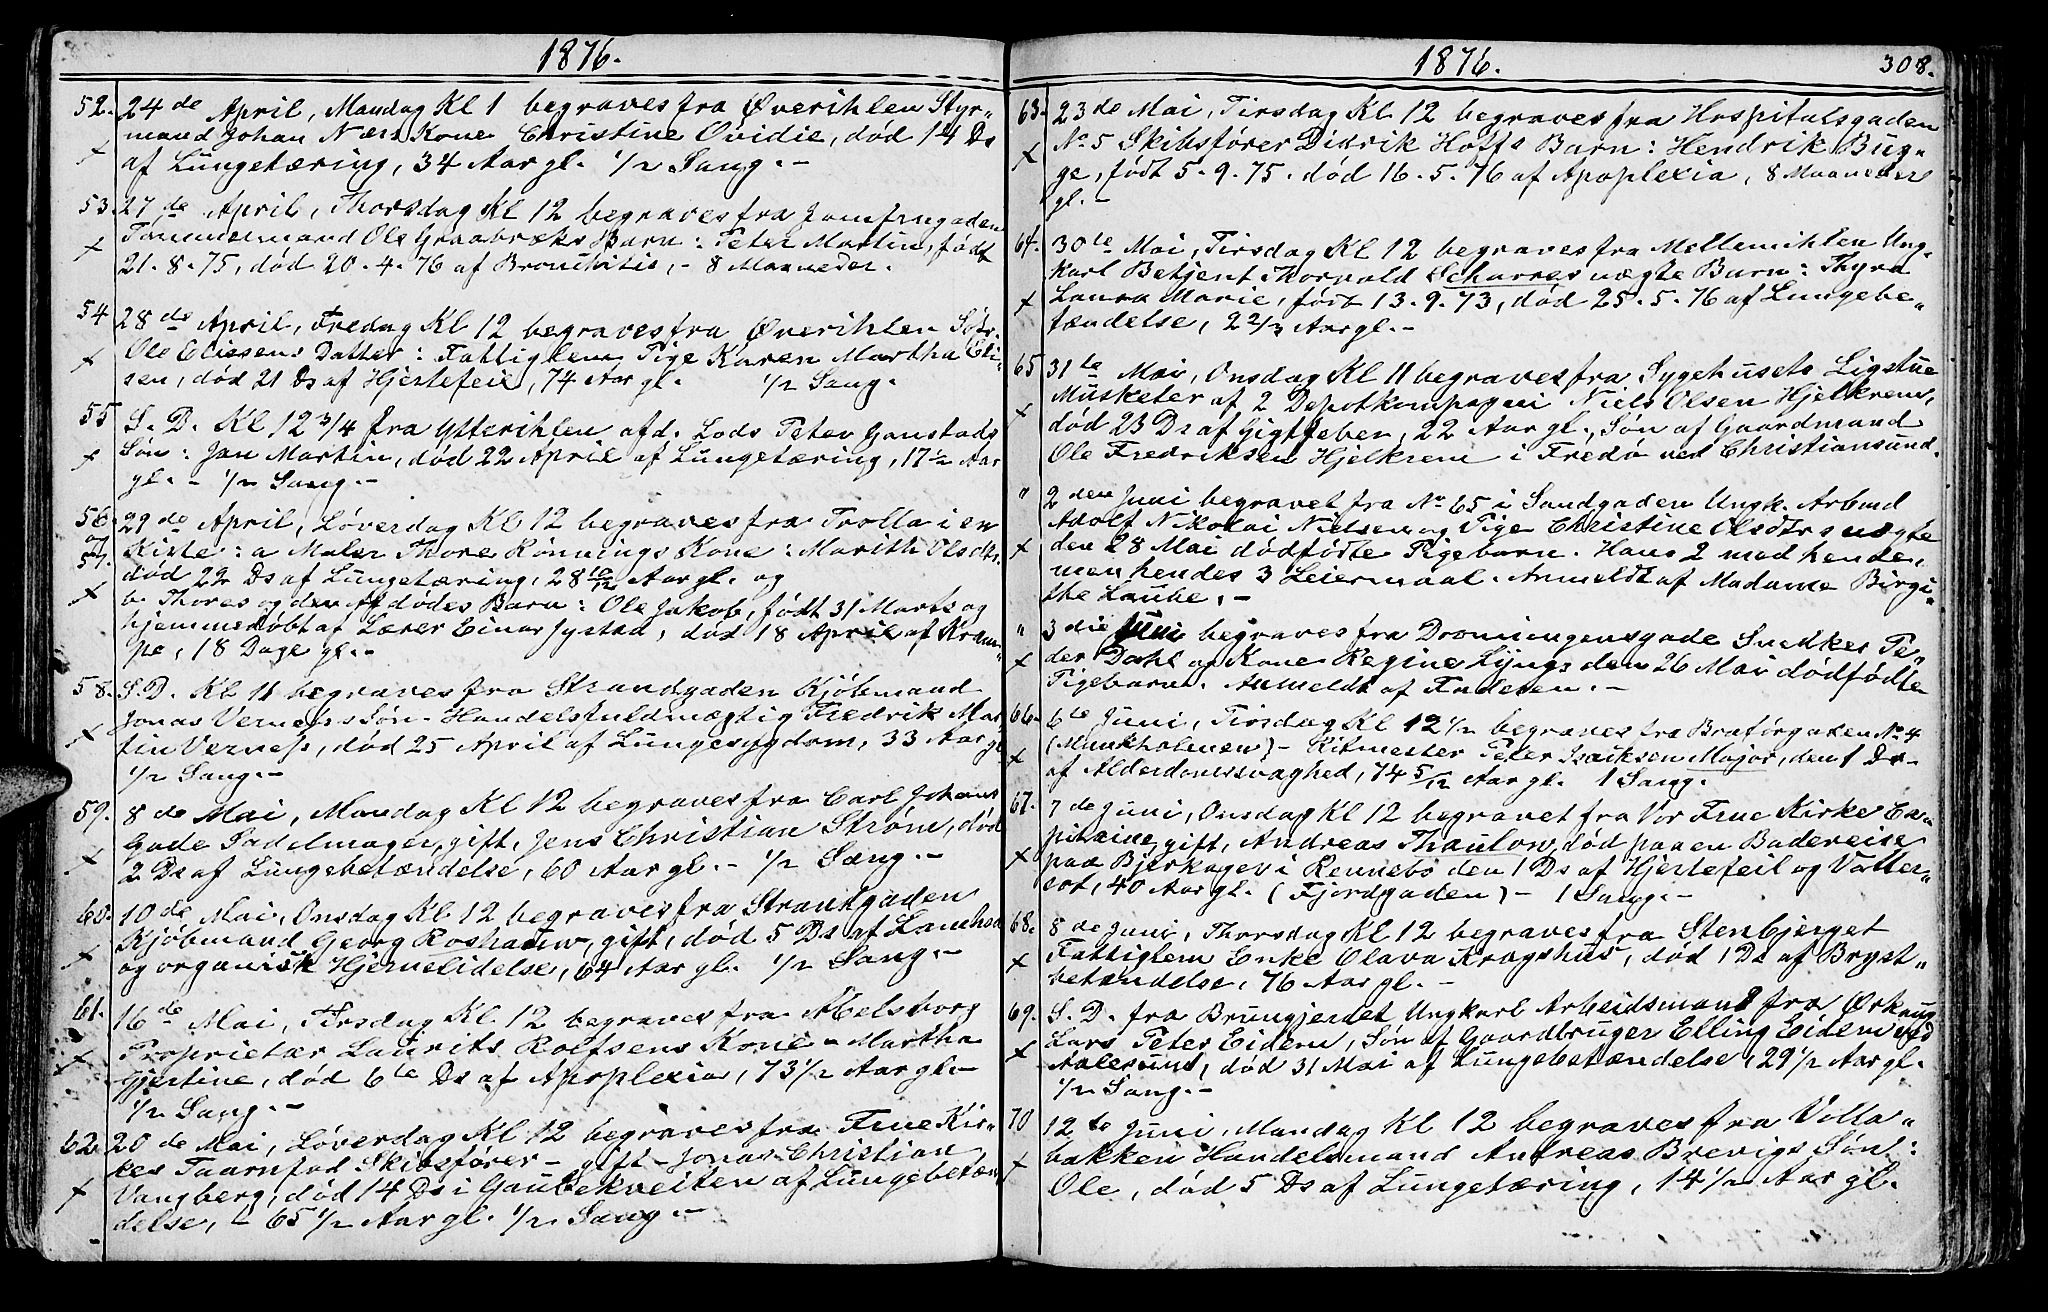 1876.
52. 24de April, Mandag Kl 1 begraves fra Øverihlen Styr-
mand Johan Næss Kone Christine Ovidie, død 14 Ds
x af Lungetæring, 34 Aar gl. 1/2 Sang.-
53. 27de April, Thorsdag Kl 12 begraves fra Jomfrugaden
x Tømmermand Ole Graabræks Barn: Peter Martin, født
21.8.75, død 20.4.76 af Bronchitis, - 8 Maaneder.
54 28de April, Fredag Kl 12 begraves fra Øverihlen
x Ole Eliesens Datter: Fattiglem Pige Karen Martha Eli-
sen, død 21 Ds af Hjertefeil, 74 Aar gl. 1/2 Sang.
55 S. D. Kl 12 3/4 fra Ytterihlen afd. Lods Peter Ganstads
x Søn: Jan Martin, død 22 April af Lungetæring, 17 1/2 Aar
gl. - 1/2 Sang.-
56. 29de April, Løverdag Kl 12 begraves fra Trolla i en
og 57. Kiste: a Maler Thore Rønnings Kone: Marith Olsdtr.
død 22 Ds af Lungetæring, 28 10/12 Aar gl. og
x b. Thores og den Afdødes Barn: Ole Jakob, født 31 Marts og
hjemmedøbt af Lærer Einar Jystad, død 18 April af Kram-
pe, 18 Dage gl.-
58. S. D. Kl 11 begraves fra Strandgaden Kjøbmand
x Jonas Verness Søn - Handelsfuldmægtig Fredrik Mar-
tin Verness, død 25 April af Lungesygdom, 33 Aar gl
1/2 Sang.-
59. 8de Mai, Mandag Kl 12 begraves fra Carl Johans
x Gade Sadelmager, gift, Jens Christian Strøm, død
2 Ds af Lungebetændelse, 60 Aar gl. - 1/2 Sang.-
60. 10de Mai, Onsdag Kl 12 begraves fra Strandgaden
x Kjøbmand Georg Roshauw, gift, død 5 Ds af
og organisk Hjernelidelse, 64 Aar gl. 1/2 Sang.-
61. 16de Mai, Tirsdag Kl 12 begraves fra Abelsborg
x Proprietær Laurits Rolfsens Kone - Martha
Gjertine, død 6te Ds af Apoplexia, 73 1/2 Aar gl.-
1/2 Sang.-
62. 20de Mai, Løverdag Kl 12 begraves fra Frue Kir-
kes Taarnfod Skibsfører - gift - Jonas Christian
x Vangberg, død 14 Ds i Gaubekveiten af Lungebetæn-
delse, - 65 1/2 Aar gl. 1/2 Sang.-
1876. 308.
63. 23de Mai, Tirsdag Kl 12 begraves fra Hospitalsgaden
x No 5 Skibsfører Didrik Hoffs Barn: Hendrik Büg-
ge, født 5.9.75. død 16.5.76 af Apoplexia, 8 Maaneder
gl.-
64. 30te Mai, Tirsdag Kl 12 begraves fra Mellemihlen Ung-
karl Betjent Thorvald Scharres uægte Barn: Thyra
x Laura Marie, født 13.9.73, død 25.5.76 af Lungebe-
tændelse, 2 2/3 Aar gl.-
65 31te Mai, Onsdag Kl 11 begraves fra Sygehusets Ligstue
x Musketer af 2 Depotkompagni Niels Olsen Hjelkrem,
død 23 Ds af Gigtfeber, 22 Aar gl., Søn af Gaardmand
Ole Fredriksen Hjelkrem i Fredø ved Christiansund.
" 2den Juni begravet fra No 65 i Sandgaden Ungk. Arbmd
Adolf Nikolai Nielsen og Pige Christine Olsdtrs uægte
x den 28 Mai dødfødte Pigebarn. Hans 2 med hende,
men hendes 3 Leiermaal. Anmeldt af Madame Birgi-
the Laube.-
" 3die Juni begraves fra Dronningensgade Snedker Pe-
x der Dahl og Kone Regine Lyngs den 26 Mai dødfødte
Pigebarn. Anmeldt af Faderen.-
66. 6te Juni, Tirsdag Kl 12 1/2 begraves fra Bratørgaden No 4
x (Munkholmen) - Ritmester Peter Isaksen Major, den 1 Ds-
af Alderdomssvaghed, 74 5/12 Aar gl. 1 Sang.
67. 7de Juni, Onsdag Kl 12 begravet fra Vor Frue Kirke Ca-
pitaine, gift, Andreas Thaulow, død paa en Badereise
x paa Bjerkager i Rennebo den 1 Ds af Hjertefeil og Vatter-
sot, 40 Aar gl. (Fjordgaden) - 1 Sang.-
68. 8de Juni, Thorsdag Kl 12 begraves fra Stenbjerget
x Fattiglem Enke Olava Kragshus, død 1 Ds af Bryst-
betændelse, 76 Aar gl.-
69. S. D. fra Brungjerdet Ungkarl Arbeidsmand fra
x Lars Peter Eidem, Søn af Gaardbruger Elling Eidem ved
Aalesund, død 31 Mai af Lungebetændelse, 29 1/2 Aar gl.
1/2 Sang.-
70 12te Juni, Mandag Kl 12 begraves fra Volla-
x bakken Handelsmand Andreas Brevigs Søn:
Ole, død 5 Ds af Lungetæring, 14 1/2 Aar gl.